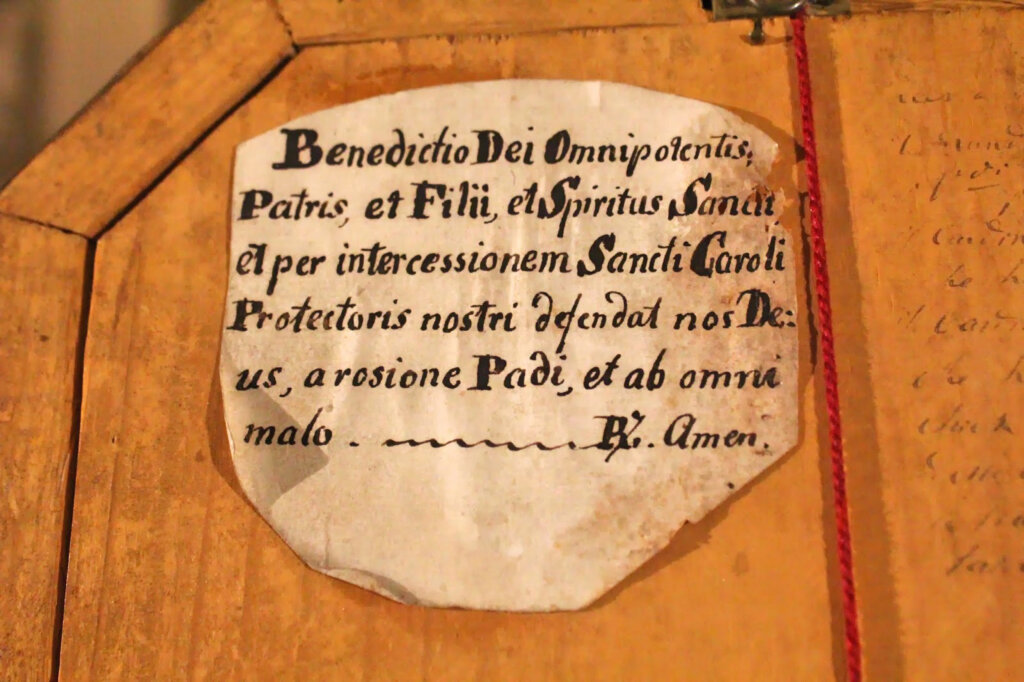 Benedictio Dei Omnipotentis,
Patris, et Filii, et Spiritus Sancti,
et per intercessionem Sancti Caroli
Protectoris nostri defendat nos De:
us, a rosione Padi, et ab omni
malo . ℟. Amen.